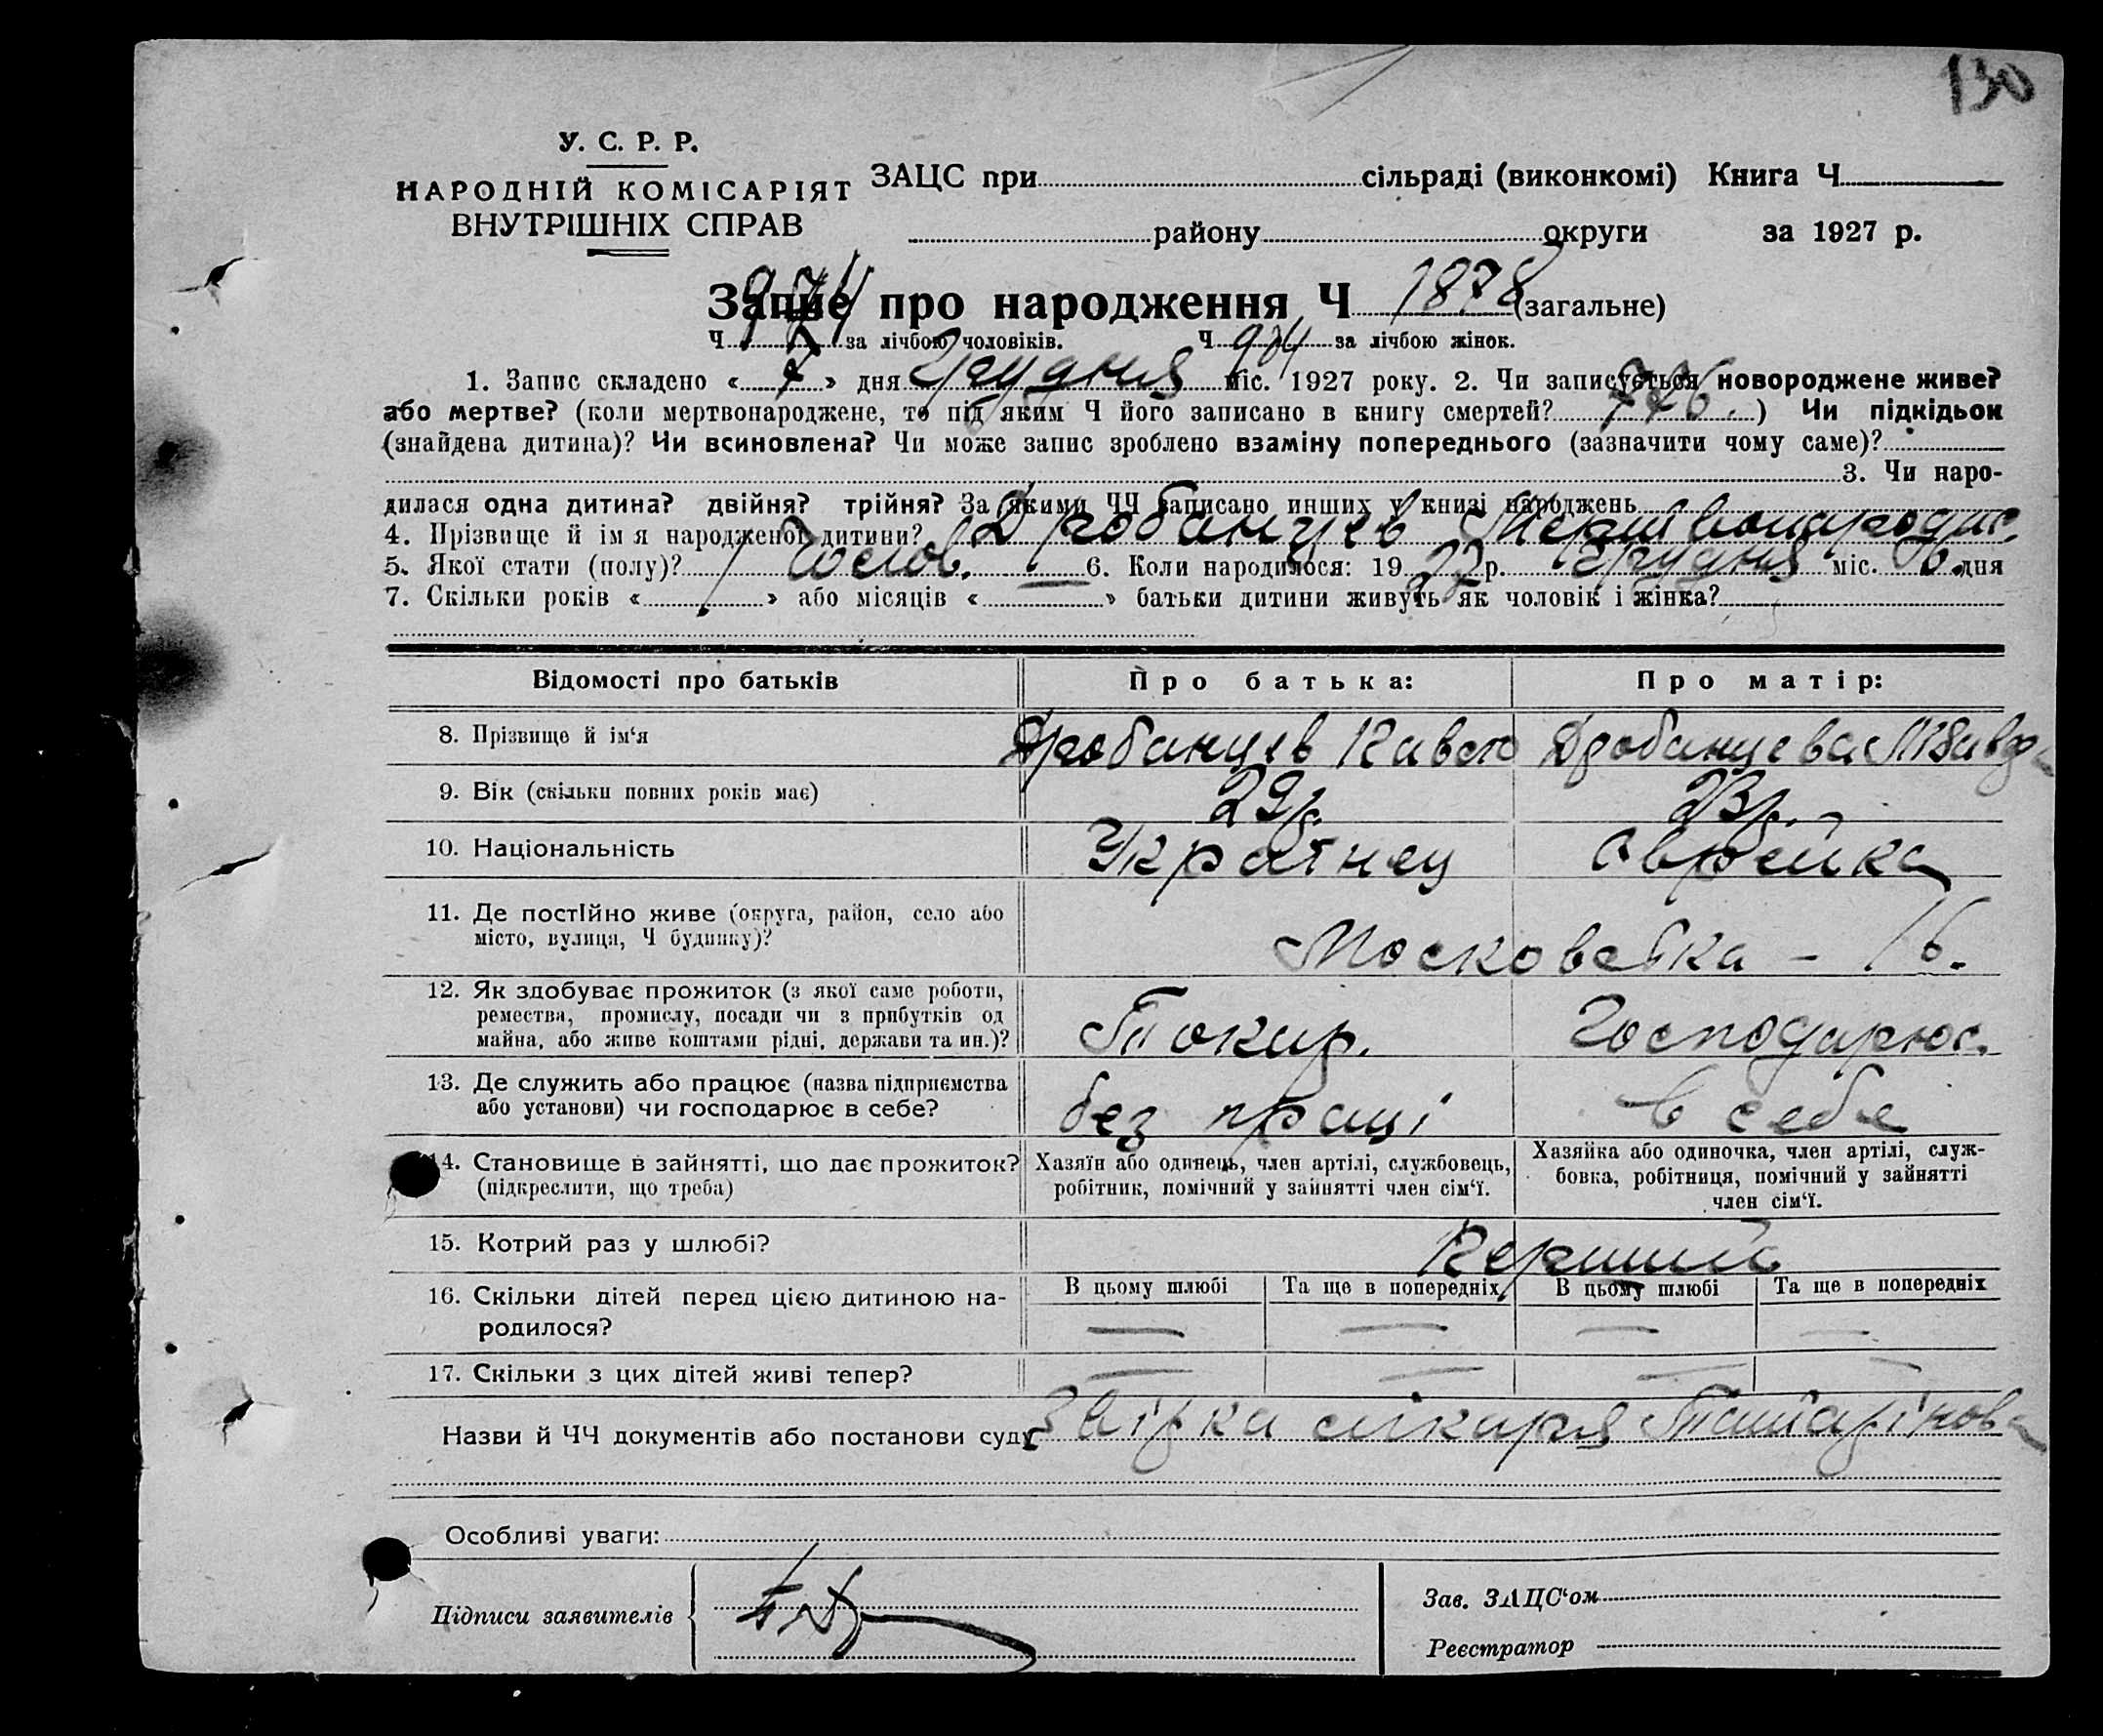 130
У. С. Р. Р.
НАРОДНІЙ КОМІСАРІЯТ
ВНУТРІШНІХ СПРАВ
ЗАЦС при сільраді (виконкомі) Книга Ч
району округи за 1927 р.
Запис про народження Ч 1878 (загальне)
Ч 974 за лічбою чоловіків. Ч 904 за лічбою жінок.
1. Запис складено « 7 » дня Грудня міс. 1927 року. 2. Чи записується новороджене живе?
або мертве? (коли мертвонароджене, то під яким Ч його записано в книгу смертей? ) Чи підкідьок
(знайдена дитина)? Чи всиновлена? Чи може запис зроблено взаміну попереднього (зазначити чому саме)?
3. Чи наро-
дилася одна дитина? двійня? трійня? За якими ЧЧ записано инших у книзі народжень
4. Прізвище й ім я народженої дитини? Дробанцев Мертвонародж.
5. Якої стати (полу)? Чолов. 6. Коли народилося: 19 27 р. Грудня міс. 6. дня
7. Скільки років « » або місяців « — » батьки дитини живуть як чоловік і жінка?
Відомості про батьків Про батька: Про матір:
8. Прізвище й ім‘я Дробанцев Дробанцева
9. Вік (скільки повних років має) 29р. 23р.
10. Національність Українец Єврейка
11. Де постійно живе (округа, район, село або
місто, вулиця, Ч будинку)?
Московська – 16.
12. Як здобуває прожиток (з якої саме роботи,
ремества, промислу, посади чи з прибутків од
майна, або живе коштами рідні, держави та ин.)?
Токар. Господарює.
13. Де служить або працює (назва підприємства
або установи) чи господарює в себе?
без праці в себе
14. Становище в зайнятті, що дає прожиток?
(підкреслити, що треба)
Хазяїн або одинець, член артілі, службовець,
робітник, помічний у зайнятті член сім‘ї.
Хазяйка або одиночка, член артілі, служ-
бовка, робітниця, помічний у зайнятті
член сім‘ї.
15. Котрий раз у шлюбі? Перший
16. Скільки дітей перед цією дитиною на-
родилося?
В цьому шлюбі Та ще в попередніх В цьому шлюбі Та ще в попередніх
— — — —
17. Скільки з цих дітей живі тепер? — — — —
Назви й ЧЧ документів або постанови суду лікаря
Особливі уваги:
Підписи заявителів
Зав. ЗАЦС‘ом
Реєстратор